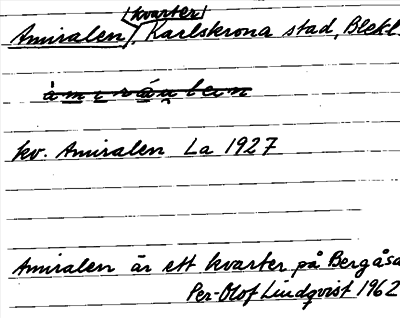 Amiralen, kvarter, Karlskrona stad, Blekl
kv. Amiralen La 1927
Amiralen är ett kvarter på Bergåsa
Per-Olof Lindqvist 1962